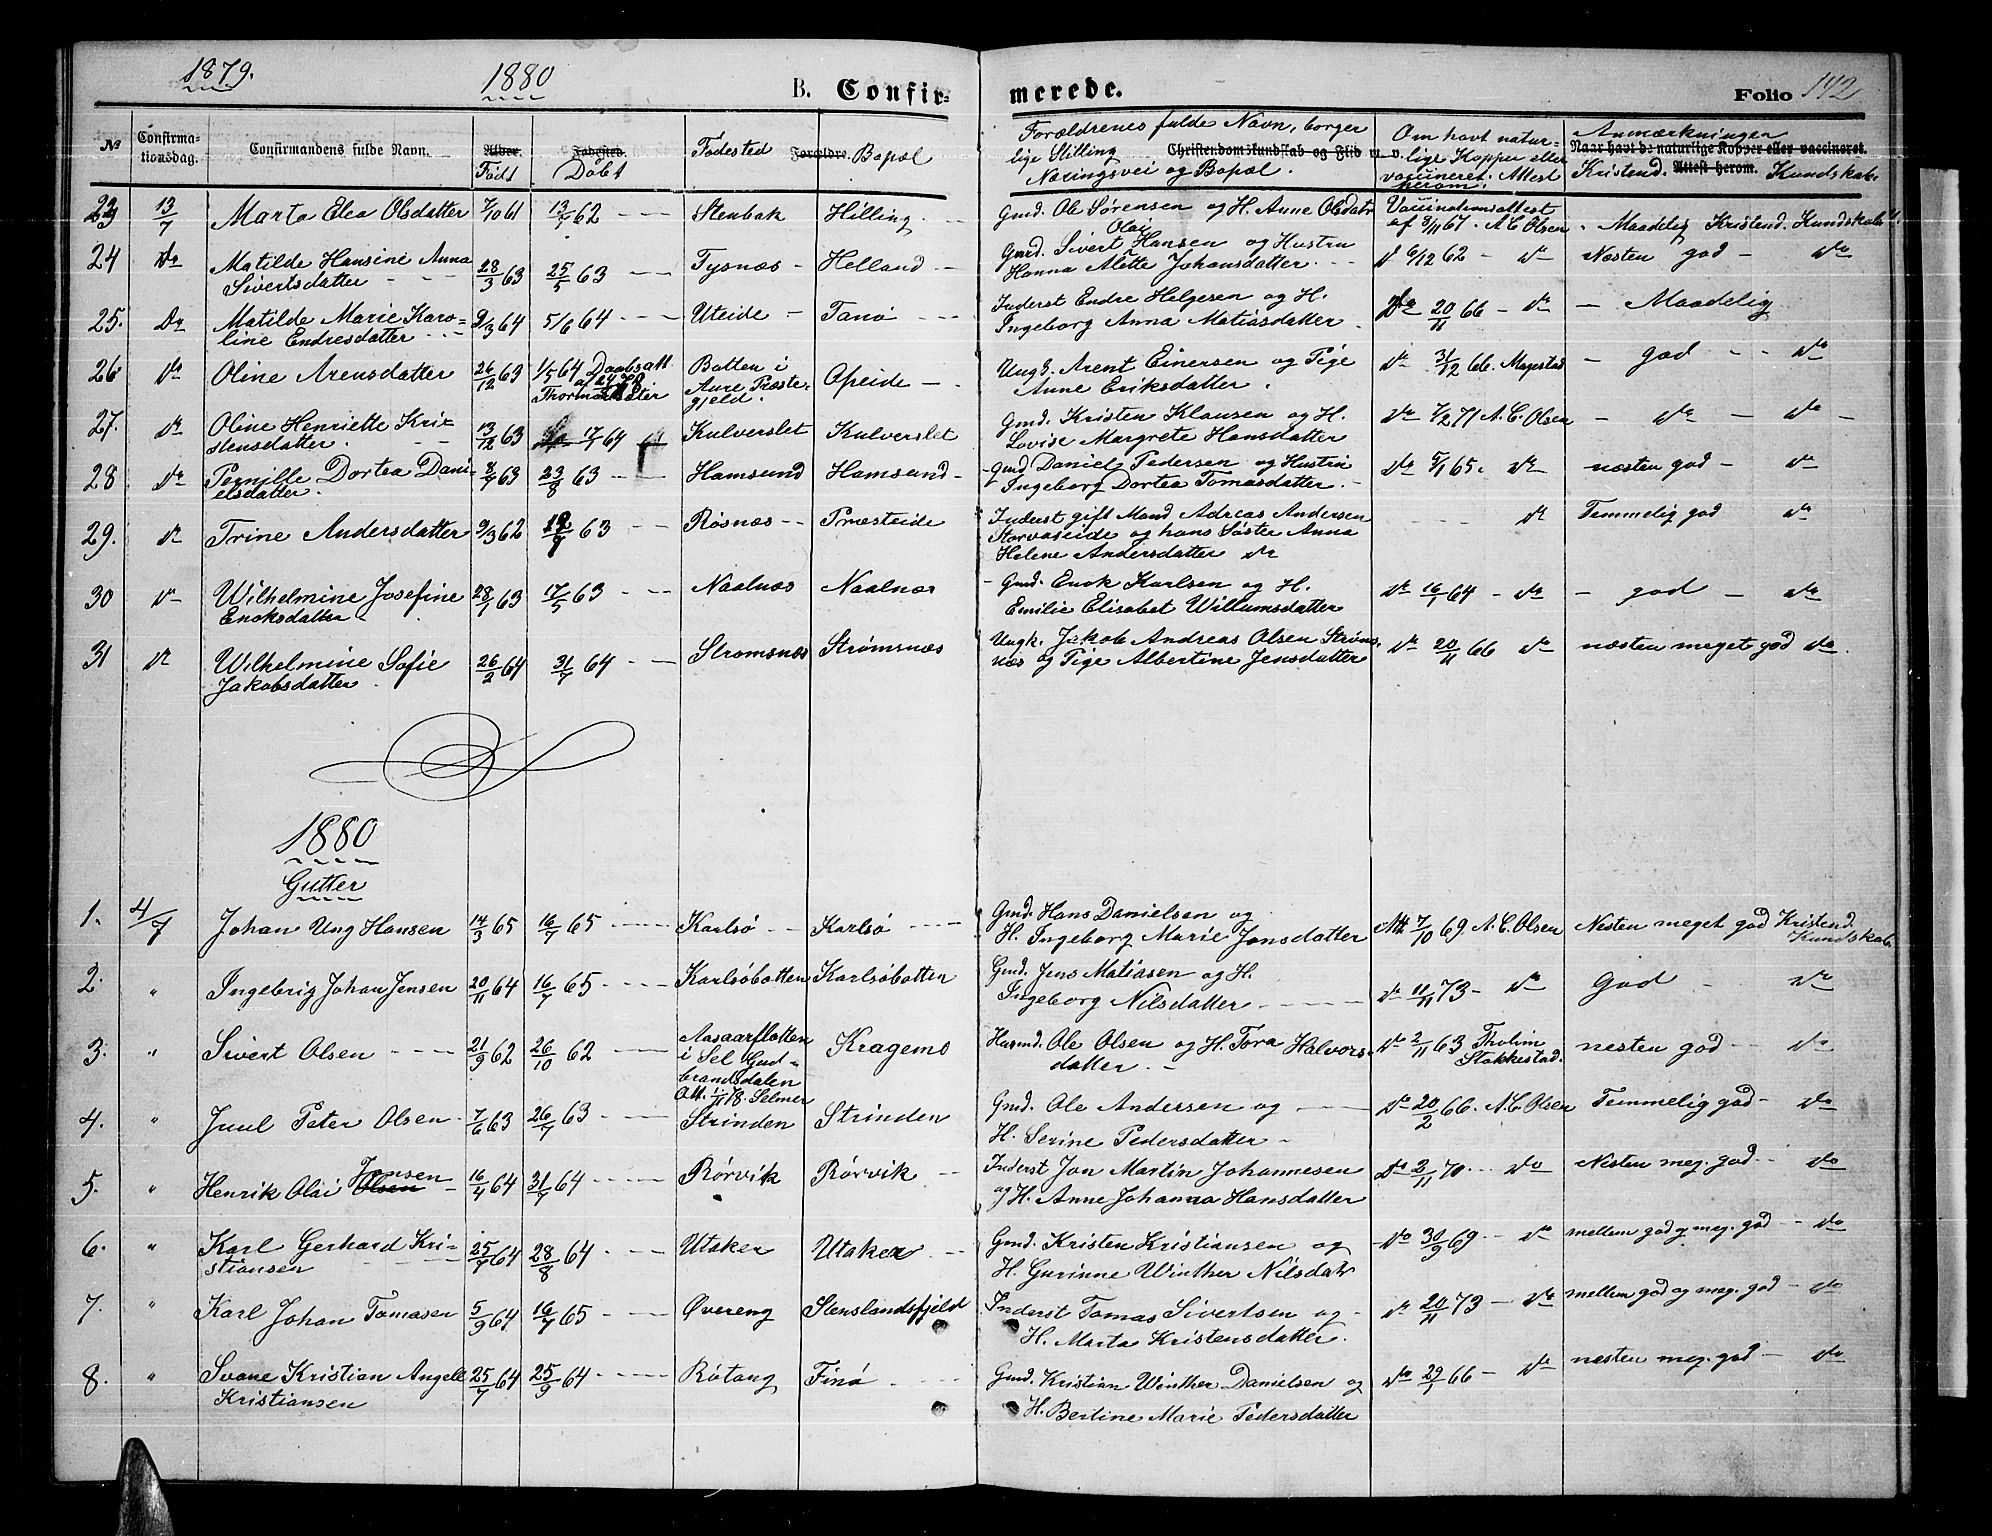 1879. 1880 B. Confir- merede. Folio 142
№ Confirma-tionsdag. Confirmandens fulde Navn. Alder. Født Fødested. Døbt Fødested Forældre. Bopæl Forældrenes fulde Navn, borgerlige Stilling Christendomskundskab og Flid m. v. Næringsvei og Bopæl. Om havt naturlige Kopper eller vaccineret. Attest herom. Anmærkninger Naar havt de naturlige Kopper eller vaccineret. Attest herom. Kristend. Kundskab.
23 13/7 Marta Elea Olsdatter 7/10 61 13/7 62 Stenbak Hilling Gmd. Ole Sørensen og H. Anne Olsdatr Vaccinationsattest af 8/11 67. A C Olsen Maadelig Kristend. Kundskab
24 Do Matilde Hansine Anna Sivertsdatter 28/3 63 25/5 63 Tysnæs Helland Gmd. Sivert Olai Hansen og Hustru Hanna Alette Johansdatter D 6/12 62 do Næsten god do
25. Do Matilde Marie Karoline Endresdatter 9/3 64 5/6 64 Uteide Tanø Inderst Endre Helgesen og H. Ingeborg Anna Matiasdatter Do 20/11 66 do Maadelig
26 do Oline Arensdatter 26/12 63 1/5 64 Daabsatt. Botten i Aure Præstegjeld. Opeide Ungk. Arent Einersen og Pige Anne Eriksdatter do 31/12 66. god do
27. do Oline Henriette Kristensdatter. 13/12 63 17/7 64 Kulverslet Kulverslet Gmd. Kristen Klausen og H. Lovise Margrete Hansdatter do 7/2 71 A. C. Olsen do do
28 do Pernille Dortea Danielsdatter. 8/7 63 23/8 63 Hamsund Hamsund Gmd. Daniel Pedersen og Hustru Ingeborg Dortea Tomasdatter. do 5/1 65. do næsten god do
29. do Trine Andersdatter 9/3 62 63 Røsnæs Præsteide Inderst gift Mand Adreas Andersen Storvaseide og hans Søster Anna Helene Andersdatter do do Temmelig god do
30 do Wilhelmine Josefine Enoksdatter 28/1 63 17/5 63 Naalnæs Naalnæs Gmd. Enok Karlsen og H. Emilie Elisabet Willumsdatter do 16/1 64 do god do
31 do Wilhelmine Sofie Jakobsdatter. 26/2 64 31/7 64 Strømsnæs Strømsnæs Ungk. Jakob Andreas Olsen Strømsnæs og Pige Albertine Jensdatter do 20/11 66 do næsten meget god do
1880
Gutter
1. 4/7 Johan Ung Hansen 14/3 65 16/7 65 Karlsø Karlsø Gmd. Hans Danielsen og H. Ingeborg Marie Jonsdatter Att 7/10 69. A. C. Olsen Nesten meget god Kristend. Kundskab.
2. " Ingebrig Johan Jensen 20/11 64 16/7 65 Karlsøbotten Karlsøbotten Gmd. Jens Matiasen og H. Ingeborg Nilsdatter do 11/11 73 do God do
3. " Sivert Olsen 21/9 62 26/10 62 Aasaarflotten i Sel Gudbrandsdalen Att. 1/11 78. Selmer Kragemo Husmd. Ole Olsen og H. Tora Halvorsdatter. do 2/11 63 Tholim Stokkestad. nesten god do
4. " Juul Peter Olsen 7/6 63 26/7 63 Strinden Strinden Gmd. Ole Andersen og H. Serine Pedersdatter do 20/2 66. A. C. Olsen Temmelig god do
5. " Henrik Olai Olsen Jonsen 16/4 64 31/7 64 Rørvik Rørvik Inderst Jon Martin Johannesen og H. Anne Johanna Hansdatter do 2/11 70 do Nesten meg. god do
6. " Karl Gerhard Kristiansen 25/7 64 28/8 64 Utaker Utaker Gmd. Kristen Kristiansen og H. Gurinne Winther Nilsdatr do 30/9 69 do mellem god og meg. god do
7. " Karl Johan Tomasen 5/9 64 16/7 65 Øvereng Stenslandsfjeld Inderst Tomas Sivertsen og H. Marta Kristensdatter. do 20/11 73 do mellem god og meg. god do
8. " Svane Kristian Angell Kristiansen 25/7 64 25/9 64 Røtang Finø Gmd. Kristian Winther Danielsen og H. Bertine Marie Pedersdatter do 29/1 66 do næsten meg. god do